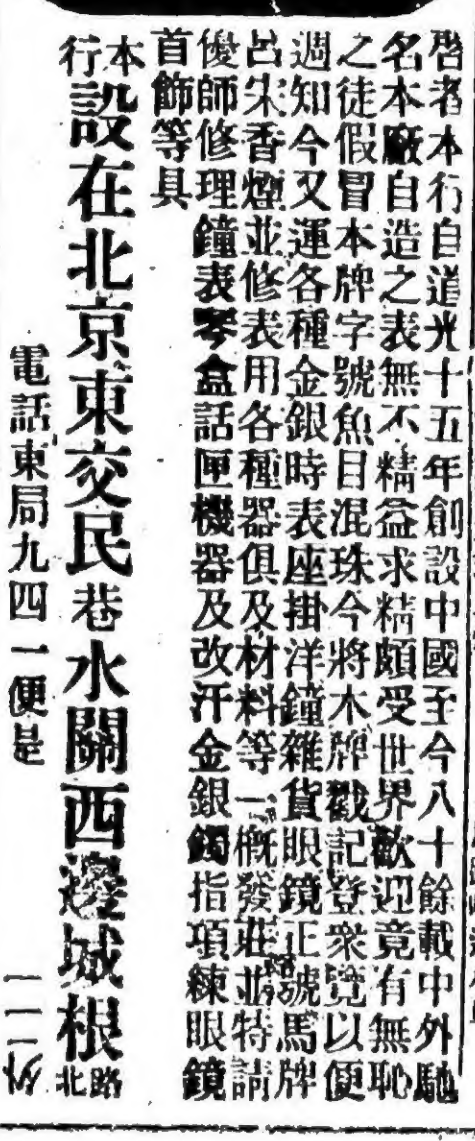 啓者本行自道光十五年創設中國至今八十餘載中外馳
名本廠自造之表無不精益求精頗受世界歡迎竟有無恥
之徒假冒本牌字號魚目混珠今將木牌戳記登衆覽以便
週知今又運各種金銀時表座掛洋鐘雜貨眼鏡正號馬牌
呂宋香煙並修表用各種器俱及材料等一概發莊並特請
優師修理鐘表琴盒話匣機器及改汗金銀鐲指項練眼鏡
首飾等具
本行設在北京東交民巷水關西邊城根路北
電話東局九四一便是
外二一一